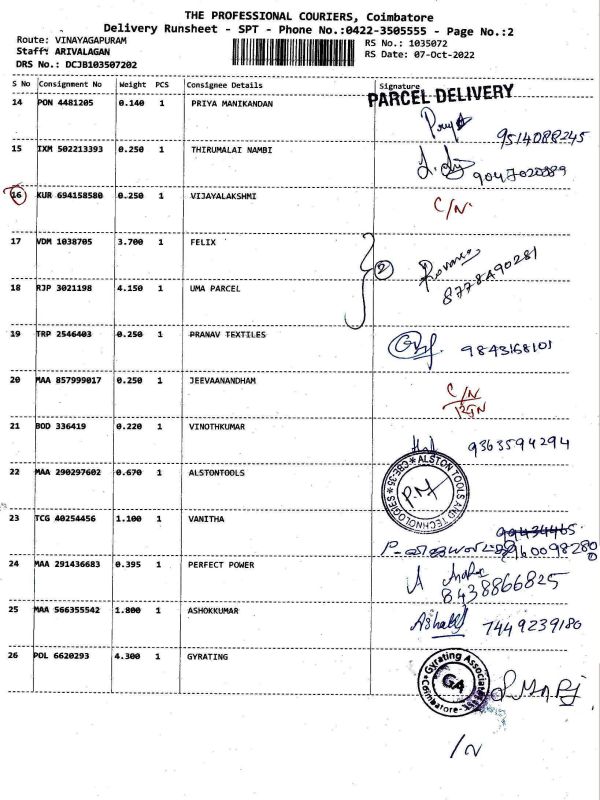 THE PROFESSIONAL COURIERS, Coimbatore
Delivery Runsheet - SPT - Phone No.:0422-3505555 - Page No.:2
Route: VINAYAGAPURAM RS No.: 1035072
Staff: ARIVALAGAN RS Date: 07-Oct-2022
DRS No.: DCJB103507202
S No Consignment No Weight PCS Consignee Details Signature
PARCEL DELIVERY
14 PON 4481205 0.140 1 PRIYA MANIKANDAN
Priya 9514088245
15 IXM 502213393 0.250 1 THIRUMALAI NAMBI
9047020889
16 KUR 694158580 0.250 1 VIJAYALAKSHMI C/N
17 VDM 1038705 3.700 1 FELIX
2
8778490281
18 RJP 3021198 4.150 1 UMA PARCEL
19 TRP 2546403 0.250 1 PRANAV TEXTILES
9843168101
20 MAA 857999017 0.250 1 JEEVAANANDHAM C/N
RTN
21 BOD 336419 0.220 1 VINOTHKUMAR
9363594294
22 MAA 290297602 0.670 1 ALSTONTOOLS
ALSTON TOOLS AND TECHNOLOGIES * CBE-35 *
P.M
23 TCG 40254456 1.100 1 VANITHA
24 MAA 291436683 0.395 1 PERFECT POWER
8438866825
25 MAA 566355542 1.800 1 ASHOKKUMAR
7449239180
26 POL 6620293 4.300 1 GYRATING
Gyrating Associates
GA
Coimbatore-35
/N